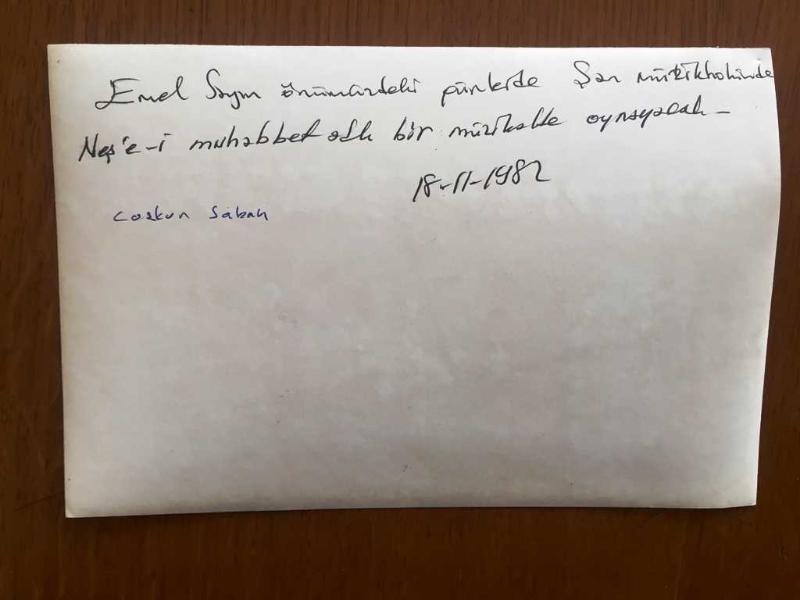 Emel Sayın önümüzdeki günlerde Şan müzikholünde
Neş'e-i muhabbet adlı bir müzikalde oynayacak_
18-11-1982
Coşkun Sabah